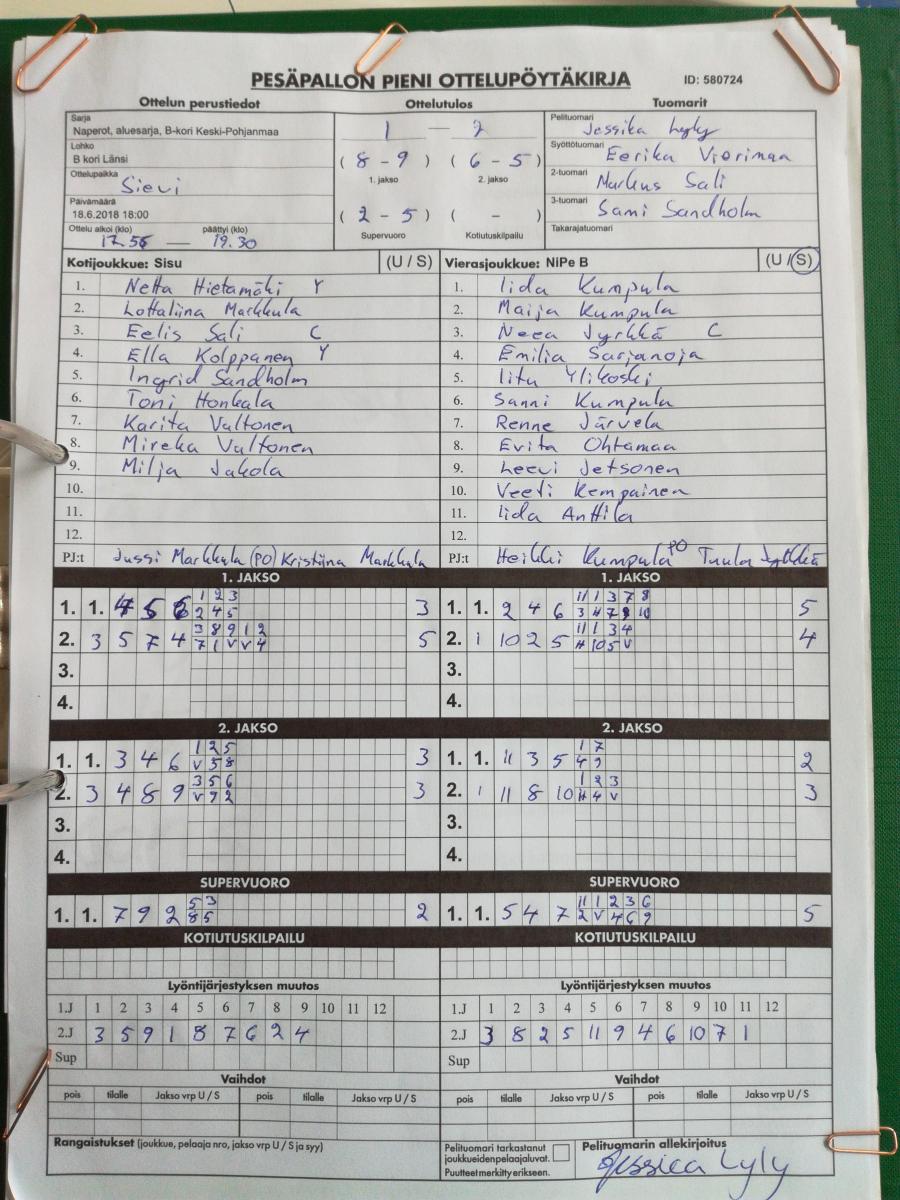 PESÄPALLON PIENI OTTELUPÖYTÄKIRJA ID: 580724
Ottelun perustiedot Ottelutulos Tuomarit
Sarja
Naperot, aluesarja, B-kori Keski-Pohjanmaa
Lohko
B kori Länsi
Ottelupaikka
Sievi
Päivämäärä
18.6.2018 18:00
Ottelu alkoi (klo) päättyi (klo)
17.56 — 19.30
1 — 2
( 8 - 9 ) ( 6 - 5 )
1. jakso 2. jakso
( 2 - 5 ) ( - )
Supervuoro Kotiutuskilpailu
Pelituomari Jessika Lyly
Syöttötuomari Eerika Vierimaa
2-tuomari Markus Sali
3-tuomari Sami Sandholm
Takarajatuomari
Kotijoukkue: Sisu (U / S)
1. Netta Hietamäki Y
2. Lottaliina Markkula
3. Eelis Sali C
4. Ella Kolppanen Y
5. Ingrid Sandholm
6. Toni Honkala
7. Karita Valtonen
8. Mireka Valtonen
9. Milja Jakola
10.
11.
12.
PJ:t Jussi Markkula (PO) Kristiina Markkula
Vierasjoukkue: NiPe B (U / S)
1. Iida Kumpula
2. Maija Kumpula
3. Neea Jyrkkä C
4. Emilia Sarjanoja
5. Iitu Ylikoski
6. Sanni Kumpula
7. Renne Järvelä
8. Evita Ohtamaa
9. Leevi Jetsonen
10. Veeti Kempainen
11. Iida Anttila
12.
PJ:t Heikki Kumpula PO Tuula Jyrkkä
1. JAKSO
1. 1. 4 5 6 1 2 3 3
2 4 5
2. 3 5 7 4 3 8 9 1 2 5
7 1 V V 4
3.
4.
1. JAKSO
1. 1. 2 4 6 11 1 3 7 8 5
3 4 7 9 10
2. 1 10 2 5 11 1 3 4 4
H 10 5 V
3.
4.
2. JAKSO
1. 1. 3 4 6 1 2 5 3
V 5 8
2. 3 4 8 9 3 5 6 3
V 9 2
3.
4.
2. JAKSO
1. 1. 11 3 5 1 7 2
4 9
2. 1 11 8 10 1 2 3 3
H 4 V
3.
4.
SUPERVUORO
1. 1. 7 9 2 5 3 2
8 5
SUPERVUORO
1. 1. 5 4 7 11 1 2 3 6 5
2 V 4 6 9
KOTIUTUSKILPAILU
KOTIUTUSKILPAILU
Lyöntijärjestyksen muutos
1.J 1 2 3 4 5 6 7 8 9 10 11 12
2.J 3 5 9 1 8 7 6 2 4
Sup
Lyöntijärjestyksen muutos
1.J 1 2 3 4 5 6 7 8 9 10 11 12
2.J 3 8 2 5 11 9 4 6 10 7 1
Sup
Vaihdot
pois tilalle Jakso vrp U / S pois tilalle Jakso vrp U / S
Vaihdot
pois tilalle Jakso vrp U / S pois tilalle Jakso vrp U / S
Rangaistukset (joukkue, pelaaja nro, jakso vrp U / S ja syy)
Pelituomari tarkastanut
joukkueidenpelaajaluvat.
Puutteet merkitty erikseen.
Pelituomarin allekirjoitus
Jessica Lyly